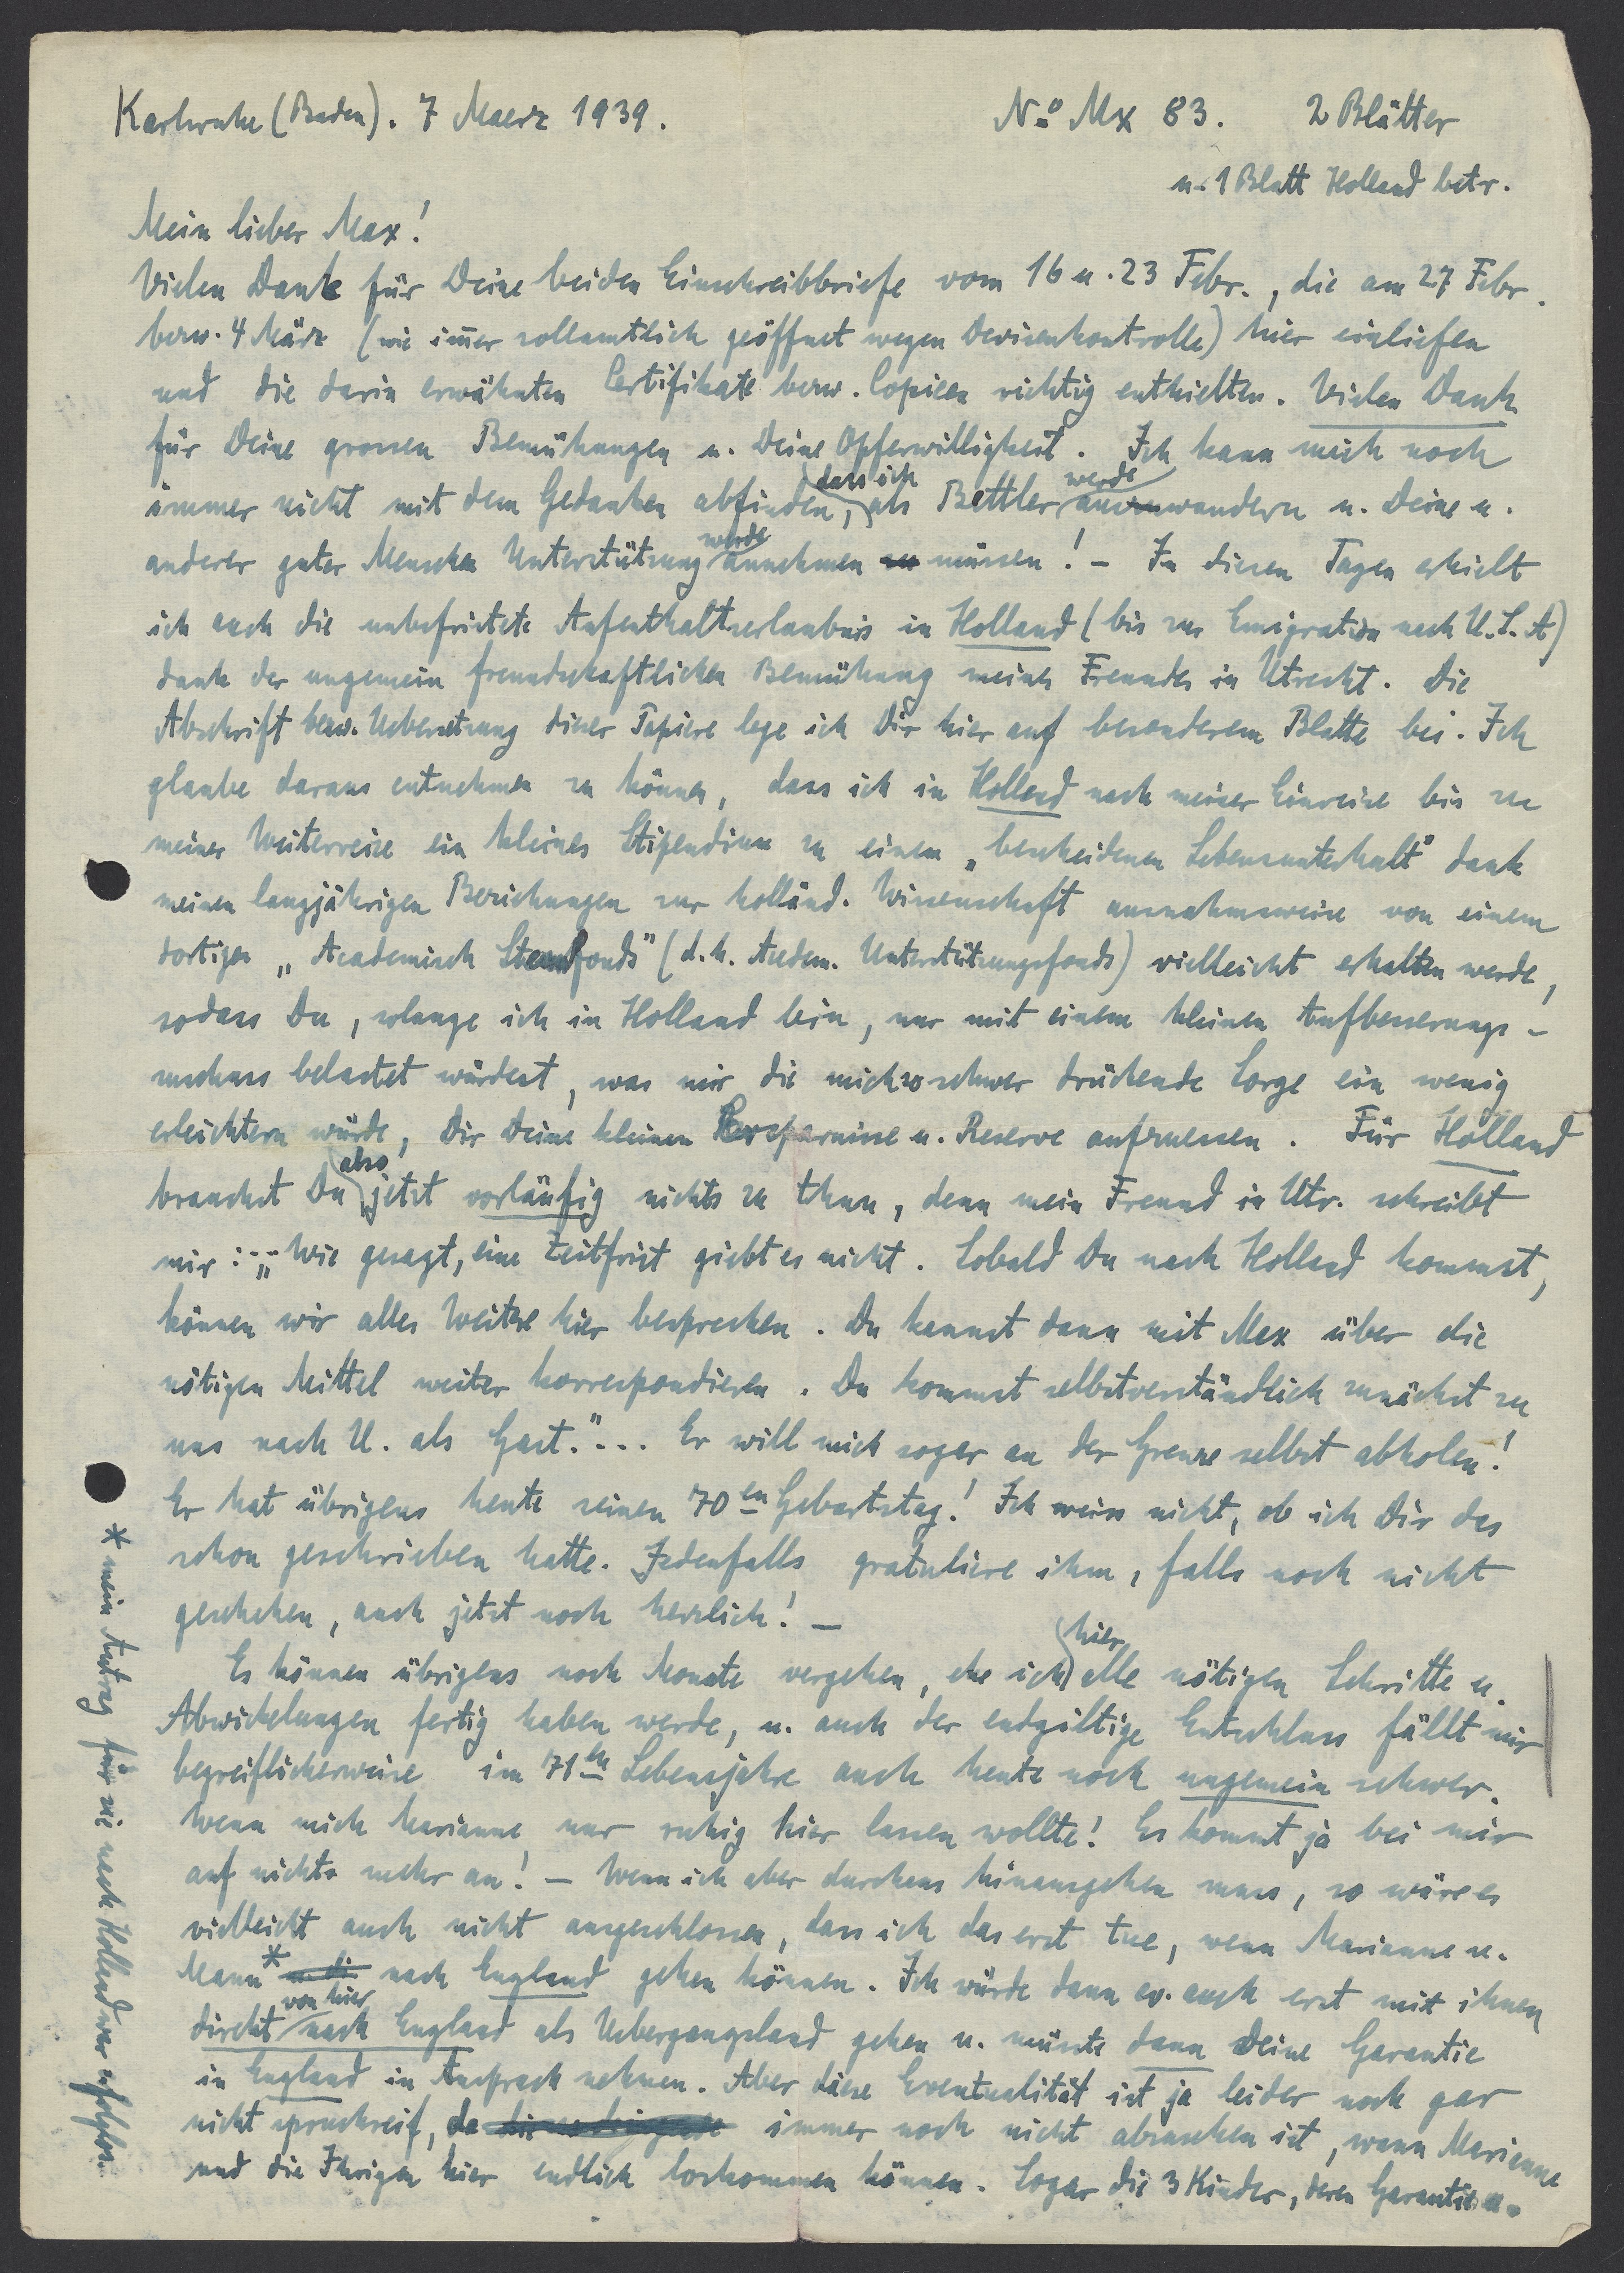 Karlsruhe (Baden). 7 Maerz 1939. No Mx 83. 2 Blätter
u. 1 Blatt Holland betr.
Mein lieber Max!
Vielen Dank für Deine beiden Einschreibbriefe vom 16 u. 23 Febr., die am 27 Febr.
bezw. 4 März (wie immer zollamtlich geöffnet wegen Devisenkontrolle) hier einliefen
und die darin erwähnten Certifikate bezw. Copieen richtig enthielten. Vielen Dank
für Deine grossen Bemühungen u. Deine Opferwilligkeit. Ich kann mich noch
immer nicht mit dem Gedanken abfinden, dass ich als Bettler auswandern werde u. Deine u.
anderer guter Menschen Unterstützung werde annehmen zu müssen! – In diesen Tagen erhielt
ich auch die unbefristete Aufenthaltserlaubnis in Holland (bis zur Emigration nach U.S.A)
dank der ungemein freundschaftlichen Bemühung meines Freundes in Utrecht. Die
Abschrift bezw. Uebersetzung dieser Papiere lege ich Dir hier auf besonderem Blatte bei. Ich
glaube daraus entnehmen zu können, dass ich in Holland nach meiner Einreise bis zu
meiner Weiterreise ein kleines Stipendium zu einem „bescheidenen Lebensunterhalt" dank
meinen langjährigen Beziehungen zur holländ. Wissenschaft ausnahmsweise von einem
dortigen „Academisch Steunfonds" (d.h. Academ. Unterstützungsfonds) vielleicht erhalten werde,
sodass Du, solange ich in Holland bin, nur mit einem kleinen Aufbesserungs-
zuschuss belastet würdest, was mir die mich so schwer drückende Sorge ein wenig
erleichtern würde, Dir Deine kleinen Ersparnisse u. Reserve aufzuessen. Für Holland
brauchst Du also jetzt vorläufig nichts zu thun, denn mein Freund in Utr. schreibt
mir: „Wie gesagt, eine Zeitfrist giebt es nicht. Sobald Du nach Holland kommst,
können wir alles Weitere hier besprechen. Du kannst dann mit Max über die
nötigen Mittel weiter korrespondieren. Du kommst selbstverständlich zunächst zu
uns nach U. als Gast."... Er will mich sogar an der Grenze selbst abholen!
Er hat übrigens heute seinen 70en Geburtstag! Ich weiss nicht, ob ich Dir das
schon geschrieben hatte. Jedenfalls gratuliere ihm, falls noch nicht
geschehen, auch jetzt noch herzlich! –
Es können übrigens noch Monate vergehen, ehe ich hier alle nötigen Schritte u.
Abwickelungen fertig haben werde, u. auch der endgiltige Entschluss fällt mir
begreiflicherweise im 71en Lebensjahre auch heute noch ungemein schwer.
Wenn mich Marianne nur ruhig hier lassen wollte! Es kommt ja bei mir
auf nichts mehr an! – Wenn ich aber durchaus hinausgehen muss, so wäre es
vielleicht auch nicht ausgeschlossen, dass ich das erst tue, wenn Marianne u.
Mann* nach England gehen können. Ich würde dann ev. auch erst mit ihnen
direkt von hier nach England als Uebergangsland gehen u. müsste dann Deine Garantie
in England in Anspruch nehmen. Aber diese Eventualität ist ja leider noch gar
nicht spruchreif, da immer noch nicht abzusehen ist, wann Marianne
und die Ihrigen hier endlich loskommen können. Sogar die 3 Kinder, deren Garantie u.
* mein Antrag für sie nach Holland war erfolglos.